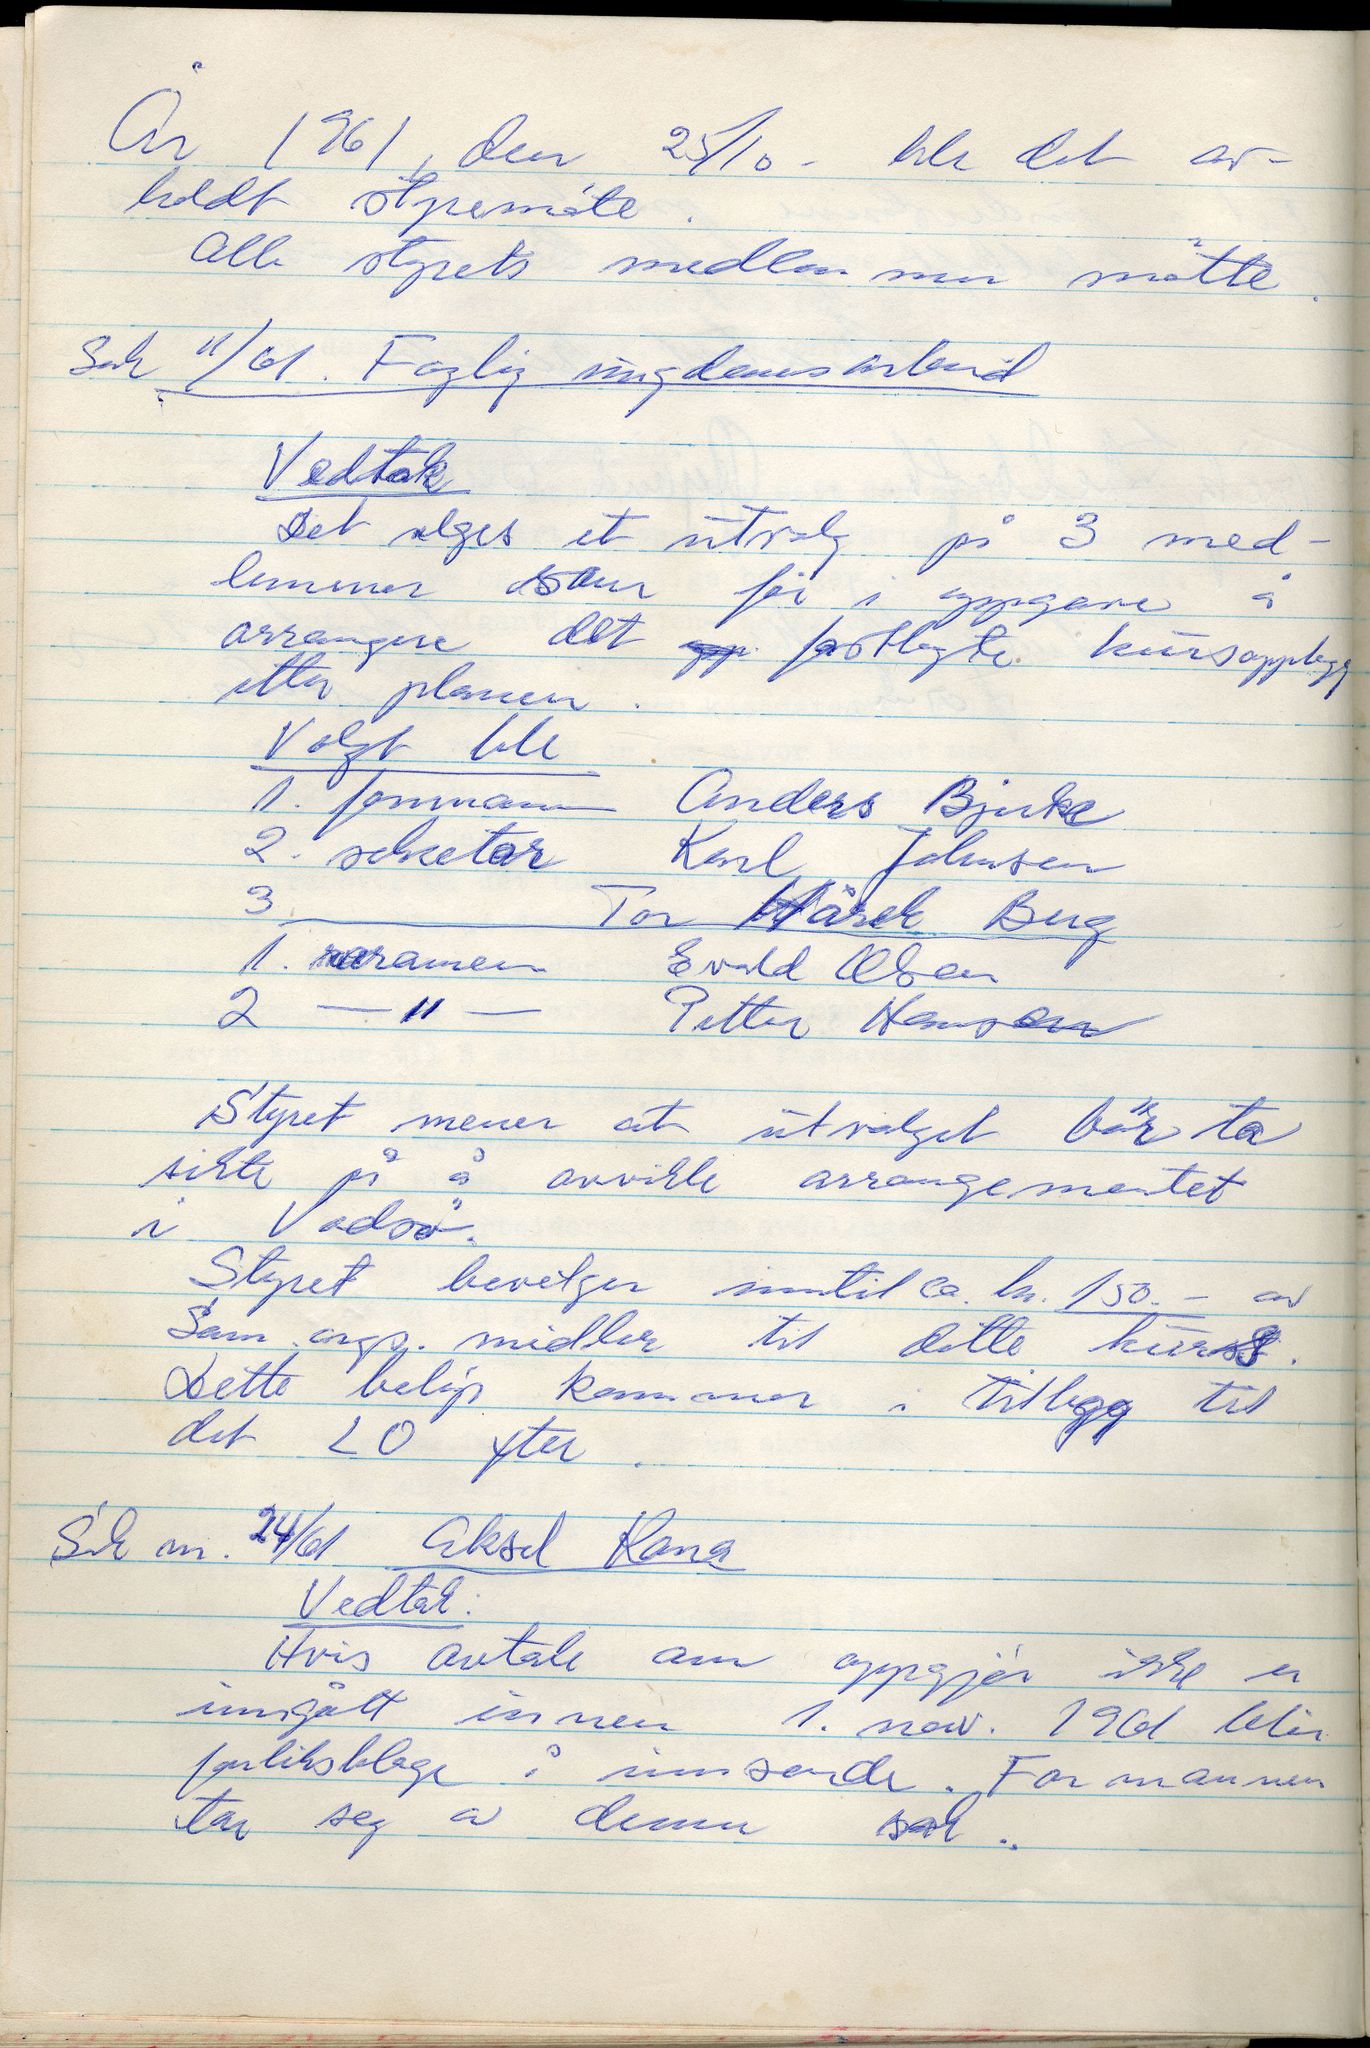 År 1961, den 25/10 - ble det av-
holdt styremøte.
Alle styrets medlemmer møtte.
Sak 11/61. Faglig ungdomsarbeid
Vedtak
Det velges et utvalg på 3 med-
lemmer som får i oppgave å
arrangere det fastlagte kursopplegg
etter planen.
Valgt ble
1. formann Anders Bjerke
2. sekretær Karl Johnsen
3 Tor Hårek Berg
1. varamen Evald Olsen
2 — " — Petter Hansen
Styret mener at utvalget bør ta
sikte på å avvikle arrangementet
i Vadsø.
Styret bevilger inntil ca. kr. 150.- av
Sam. orgs. midler til dette kurs.
Dette beløp kommer i tillegg til
det LO yter.
Sak nr. 24/61 Aksel Kana
Vedtak:
Hvis avtale om oppgjør ikke er
inngått innen 1. nov. 1961 blir
forliksklage å innsende. Formannen
tar seg av denne sak..